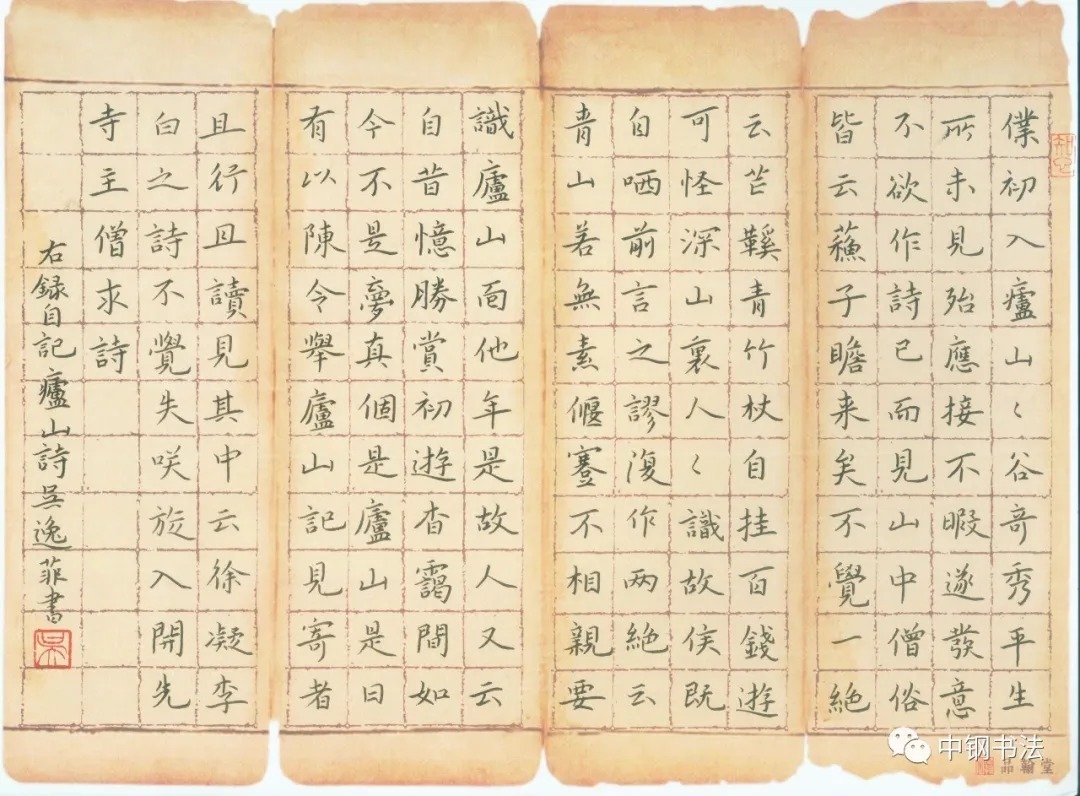 僕初入廬山〻谷奇秀平生
所未見殆應接不暇遂發意
不欲作詩已而見山中僧俗
皆云蘓子瞻来矣不覺一絕
云芒鞵青竹杖自挂百錢遊
可怪深山裏人〻識故侯既
自哂前言之謬復作两絕云
青山若無素偃蹇不相親要
識廬山面他年是故人又云
自昔憶勝賞初遊杳靄間如
今不是夢真個是廬山是日
有以陳令舉廬山記見寄者
且行且讀見其中云徐凝李
白之詩不覺失咲旋入開先
寺主僧求詩
右録自記廬山詩吳逸菲書
吳
中钢书法
品翰堂